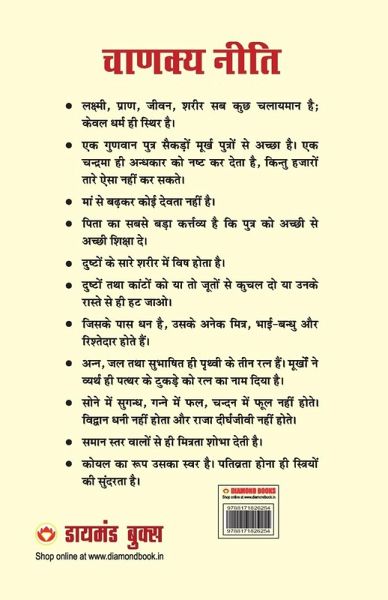 चाणक्य नीति
• लक्ष्मी, प्राण, जीवन, शरीर सब कुछ चलायमान है;
केवल धर्म ही स्थिर है।
• एक गुणवान पुत्र सैकड़ों मूर्ख पुत्रों से अच्छा है। एक
चन्द्रमा ही अन्धकार को नष्ट कर देता है, किन्तु हजारों
तारे ऐसा नहीं कर सकते।
• मां से बढ़कर कोई देवता नहीं है।
• पिता का सबसे बड़ा कर्त्तव्य है कि पुत्र को अच्छी से
अच्छी शिक्षा दे।
• दुष्टों के सारे शरीर में विष होता है।
• दुष्टों तथा कांटों को या तो जूतों से कुचल दो या उनके
रास्ते से ही हट जाओ।
• जिसके पास धन है, उसके अनेक मित्र, भाई-बन्धु और
रिश्तेदार होते हैं।
• अन्न, जल तथा सुभाषित ही पृथ्वी के तीन रत्न हैं। मूर्खों ने
व्यर्थ ही पत्थर के टुकड़े को रत्न का नाम दिया है।
• सोने में सुगन्ध, गन्ने में फल, चन्दन में फूल नहीं होते।
विद्वान धनी नहीं होता और राजा दीर्घजीवी नहीं होते।
• समान स्तर वालों से ही मित्रता शोभा देती है।
• कोयल का रूप उसका स्वर है। पतिव्रता होना ही स्त्रियों
की सुंदरता है।
DIAMOND BOOKS
www.diamondbook.in
9788171826254
9788171826254
डायमंड बुक्स
Shop online at www.diamondbook.in